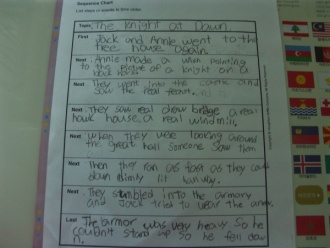 Sequence Chart
List steps or events in time order.
Topic The Knight at Dawn
First Jack and Annie went to the
tree house again.
Next Annie made a wish pointing
to the picture of a knight on a
Next They went into the castle and
saw the real feast.
Next They saw real draw bridge a real
hawk house a real windmill.
Next when They were looking around
the great hall someone saw them
Next Then they ran as fast as they could
down dimly lit hallway.
Next They stumbled into the armory
and Jack tries to wear the armor.
Last The armor was very heavy so he
couldn't stand up so he fell down